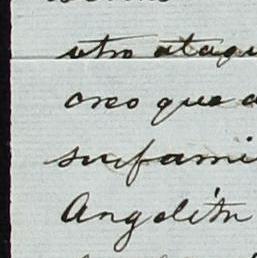 otro ataqu
creo que a
su fami
Angelitn